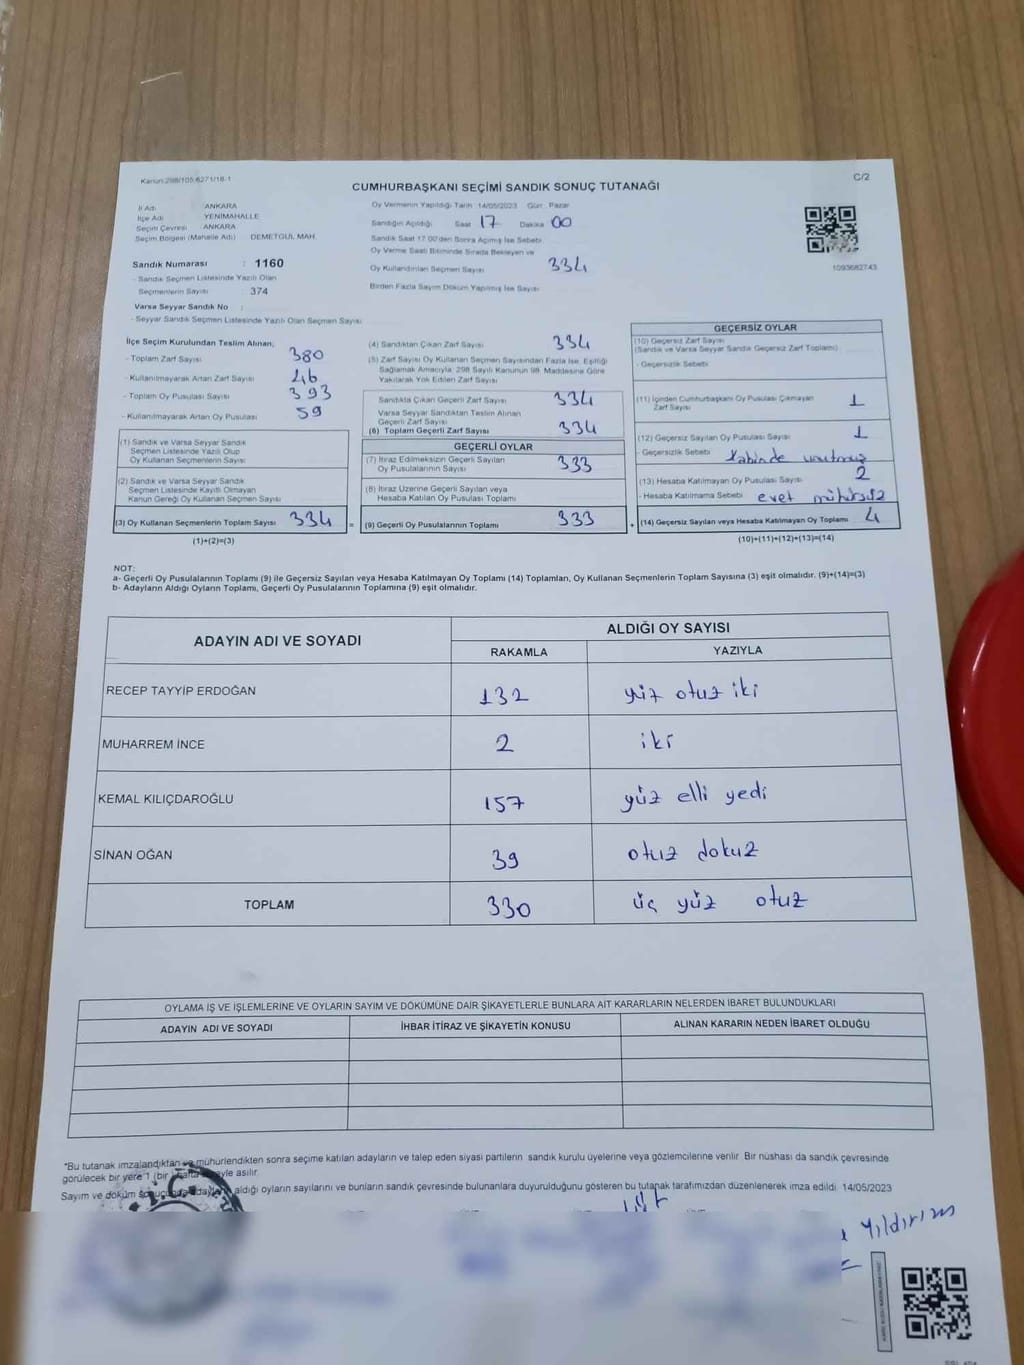 Kanun:298/105:6271/16-1
C/2
CUMHURBAŞKANI SEÇİMİ SANDIK SONUÇ TUTANAĞI
İl Adı : ANKARA
İlçe Adı YENİMAHALLE
Seçim Çevresi : ANKARA
Seçim Bölgesi (Mahalle Adı) : DEMETGÜL MAH.
Sandık Numarası : 1160
- Sandık Seçmen Listesinde Yazılı Olan
Seçmenlerin Sayısı : 374
Varsa Seyyar Sandık No :
- Seyyar Sandık Seçmen Listesinde Yazılı Olan Seçmen Sayısı
Oy Vermenin Yapıldığı Tarih 14/05/2023 Gün: Pazar
Sandığın Açıldığı Saat 17 Dakika 00
Sandık Saat 17.00'den Sonra Açımış İse Sebebi
Oy Verme Saati Bitiminde Sırada Bekleyen ve
Oy Kullandırılan Seçmen Sayısı 334
Birden Fazla Sayım Döküm Yapılmış İse Sayısı
1093682743
İlçe Seçim Kurulundan Teslim Alınan;
- Toplam Zarf Sayısı 380
- Kullanılmayarak Artan Zarf Sayısı 46
- Toplam Oy Pusulası Sayısı 393
- Kullanılmayarak Artan Oy Pusulası 59
(1) Sandık ve Varsa Seyyar Sandık
Seçmen Listesinde Yazılı Olup
Oy Kullanan Seçmenlerin Sayısı
(2) Sandık ve Varsa Seyyar Sandık
Seçmen Listesinde Kayıtlı Olmayan
Kanun Gereği Oy Kullanan Seçmen Sayısı
(3) Oy Kullanan Seçmenlerin Toplam Sayısı 334 =
(1)+(2)=(3)
(4) Sandıktan Çıkan Zarf Sayısı 334
(5) Zarf Sayısı Oy Kullanan Seçmen Sayısından Fazla İse, Eşitliği
Sağlamak Amacıyla, 298 Sayılı Kanunun 98. Maddesine Göre
Yakılarak Yok Edilen Zarf Sayısı
Sandıkta Çıkan Geçerli Zarf Sayısı 334
Varsa Seyyar Sandıktan Teslim Alınan
Geçerli Zarf Sayısı
(6) Toplam Geçerli Zarf Sayısı 334
GEÇERLİ OYLAR
(7) İtiraz Edilmeksizin Geçerli Sayılan
Oy Pusulalarının Sayısı 333
(8) İtiraz Üzerine Geçerli Sayılan veya
Hesaba Katılan Oy Pusulası Toplamı
(9) Geçerli Oy Pusulalarının Toplamı 333 +
GEÇERSİZ OYLAR
(10) Geçersiz Zarf Sayısı
(Sandık ve Varsa Seyyar Sandık Geçersiz Zarf Toplamı)
- Geçersizlik Sebebi
(11) İçinden Cumhurbaşkanı Oy Pusulası Çıkmayan
Zarf Sayısı 1
(12) Geçersiz Sayılan Oy Pusulası Sayısı 1
- Geçersizlik Sebebi Kabinde unutmuş
(13) Hesaba Katılmayan Oy Pusulası Sayısı 2
- Hesaba Katılmama Sebebi evet mühürsüz
(14) Geçersiz Sayılan veya Hesaba Katılmayan Oy Toplamı 4
(10)+(11)+(12)+(13)=(14)
NOT:
a- Geçerli Oy Pusulalarının Toplamı (9) ile Geçersiz Sayılan veya Hesaba Katılmayan Oy Toplamı (14) Toplamları, Oy Kullanan Seçmenlerin Toplam Sayısına (3) eşit olmalıdır. (9)+(14)=(3)
b- Adayların Aldığı Oyların Toplamı, Geçerli Oy Pusulalarının Toplamına (9) eşit olmalıdır.
ADAYIN ADI VE SOYADI
ALDIĞI OY SAYISI
RAKAMLA YAZIYLA
RECEP TAYYİP ERDOĞAN 132 yüz otuz iki
MUHARREM İNCE 2 iki
KEMAL KILIÇDAROĞLU 157 yüz elli yedi
SİNAN OĞAN 39 otuz dokuz
TOPLAM 330 üç yüz otuz
OYLAMA İŞ VE İŞLEMLERİNE VE OYLARIN SAYIM VE DÖKÜMÜNE DAİR ŞİKAYETLERLE BUNLARA AİT KARARLARIN NELERDEN İBARET BULUNDUKLARI
ADAYIN ADI VE SOYADI İHBAR İTİRAZ VE ŞİKAYETİN KONUSU ALINAN KARARIN NEDEN İBARET OLDUĞU
*Bu tutanak imzalandıktan ve mühürlendikten sonra seçime katılan adayların ve talep eden siyasi partilerin sandık kurulu üyelerine veya gözlemcilerine verilir. Bir nüshası da sandık çevresinde
görülecek bir yere 1 (bir) hafta süreyle asılır.
Sayım ve döküm sonucunda adayların aldığı oyların sayılarını ve bunların sandık çevresinde bulunanlara duyurulduğunu gösteren bu tutanak tarafımızdan düzenlenerek imza edildi. 14/05/2023
Yıldırım